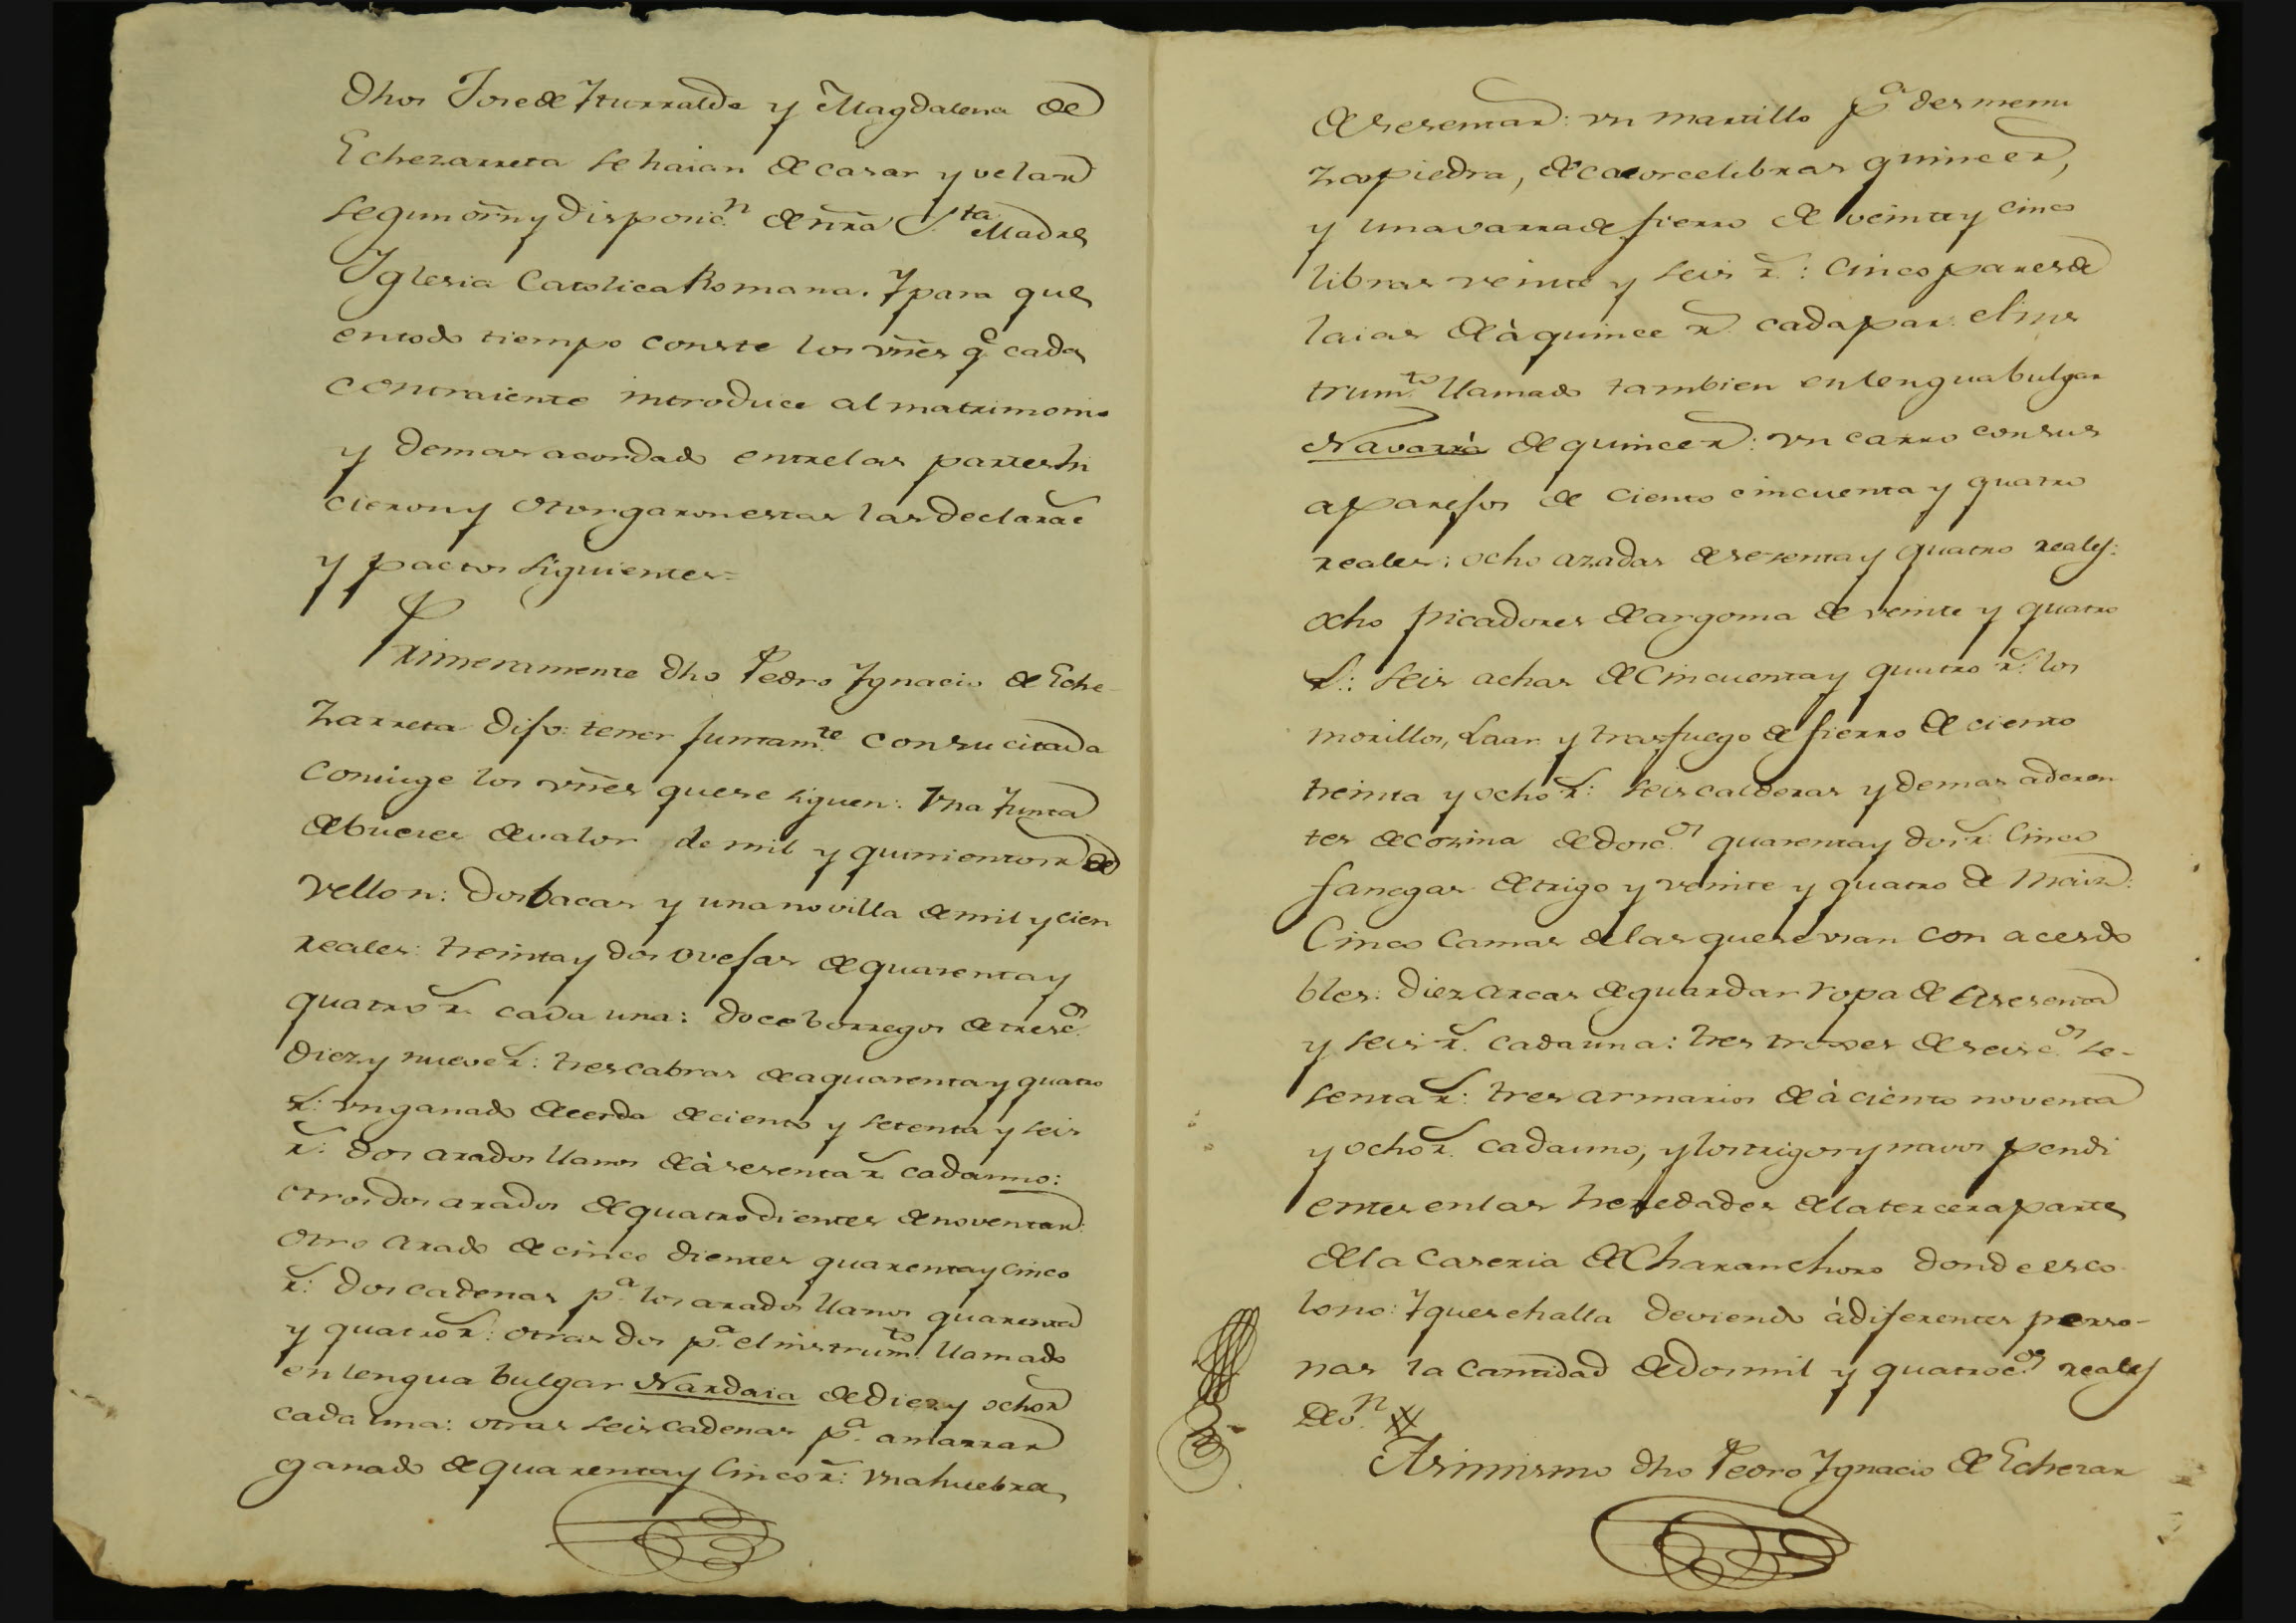 dhos Jose de Yturralde y Magdalena de
Echezarreta se haian de casar y velar
segun orñ y disposicⁿ de nrã S.ta Madre
Yglesia Catolica Romana. Y para que
en todo tiempo conste los vñes q.e cada
contraiente introduce al matrimonio
y demas acordado entre las partes hi
cieron y otorgaron estas las declarac
y pactos siguientes=
Primeramente dho Pedro Ygnacio de Eche
zarreta dijo: tener juntam.te con su citada
coniuge los vñes que se siguen: Vna Junta
de bueies de valor de mil y quinientos r de
vellon: Dos bacas y una novilla de mil y cien
reales: treinta y dos ovejas de quarenta y
quatro r.s cada una: doce borregos de tresc.os
diez y nueve r.s: tres cabras de a quarenta y quatro
r.s: vn ganado de cerda de ciento y setenta y seis
r.s: dos arados llanos de à sesenta r.s cada uno:
otros dos arados de quatro dientes de noventa r.:
Otro arado de cinco dientes quarenta y cinco
r.s: dos cadenas p.a los arados llanos quarenta
y quatro r.s: otras dos p.a el instrum.to llamado
en lengua bulgar Nardaia de diez y ocho r
cada una: otras seis cadenas p.a amarrar
ganado de quarenta y cinco r.s: vna huebra
de sesenta r.: vn martillo p.a desmenu
zar piedra, de catorce libras quince r,
y una varra de fierro de veinte y cinco
libras veinte y seis r.s: Cinco pares de
laias de à quince r.s cada par: el ins
trum.to llamado tambien en lengua bulgar
Navarrà de quince r.: vn carro con sus
aparejos de ciento cincuenta y quatro
reales: ocho azadas de sesenta y quatro reales:
ocho picadores de argoma de veinte y quatro
r.s: seis achas de Cincuenta y quatro r.s: los
morillos, Laar y trasfuego de fierro de ciento
treinta y ocho r.s: seis calderas y demas aderen
tes de cozina de dosc.os quarenta y dos r.s: Cinco
fanegas de trigo y veinte y quatro de Maiz:
Cinco Camas de las que se vsan con acesdo
bles: diez arcas de guardar ropa de à sesenta
y seis r.s cada una: tres troxes de seisc.os se-
senta r.s: tres armarios de à ciento noventa
y ocho r.s cada uno, y los trigos y navos pendi
entes en las heredades de la tercera parte
de la Caseria de Charanchoro donde es co
lono: Y que se halla deviendo à diferentes perso-
nas la Cantidad de dos mil y quatroc.os reales
de v.n
Asimismo dho Pedro Ygnacio de Echezar